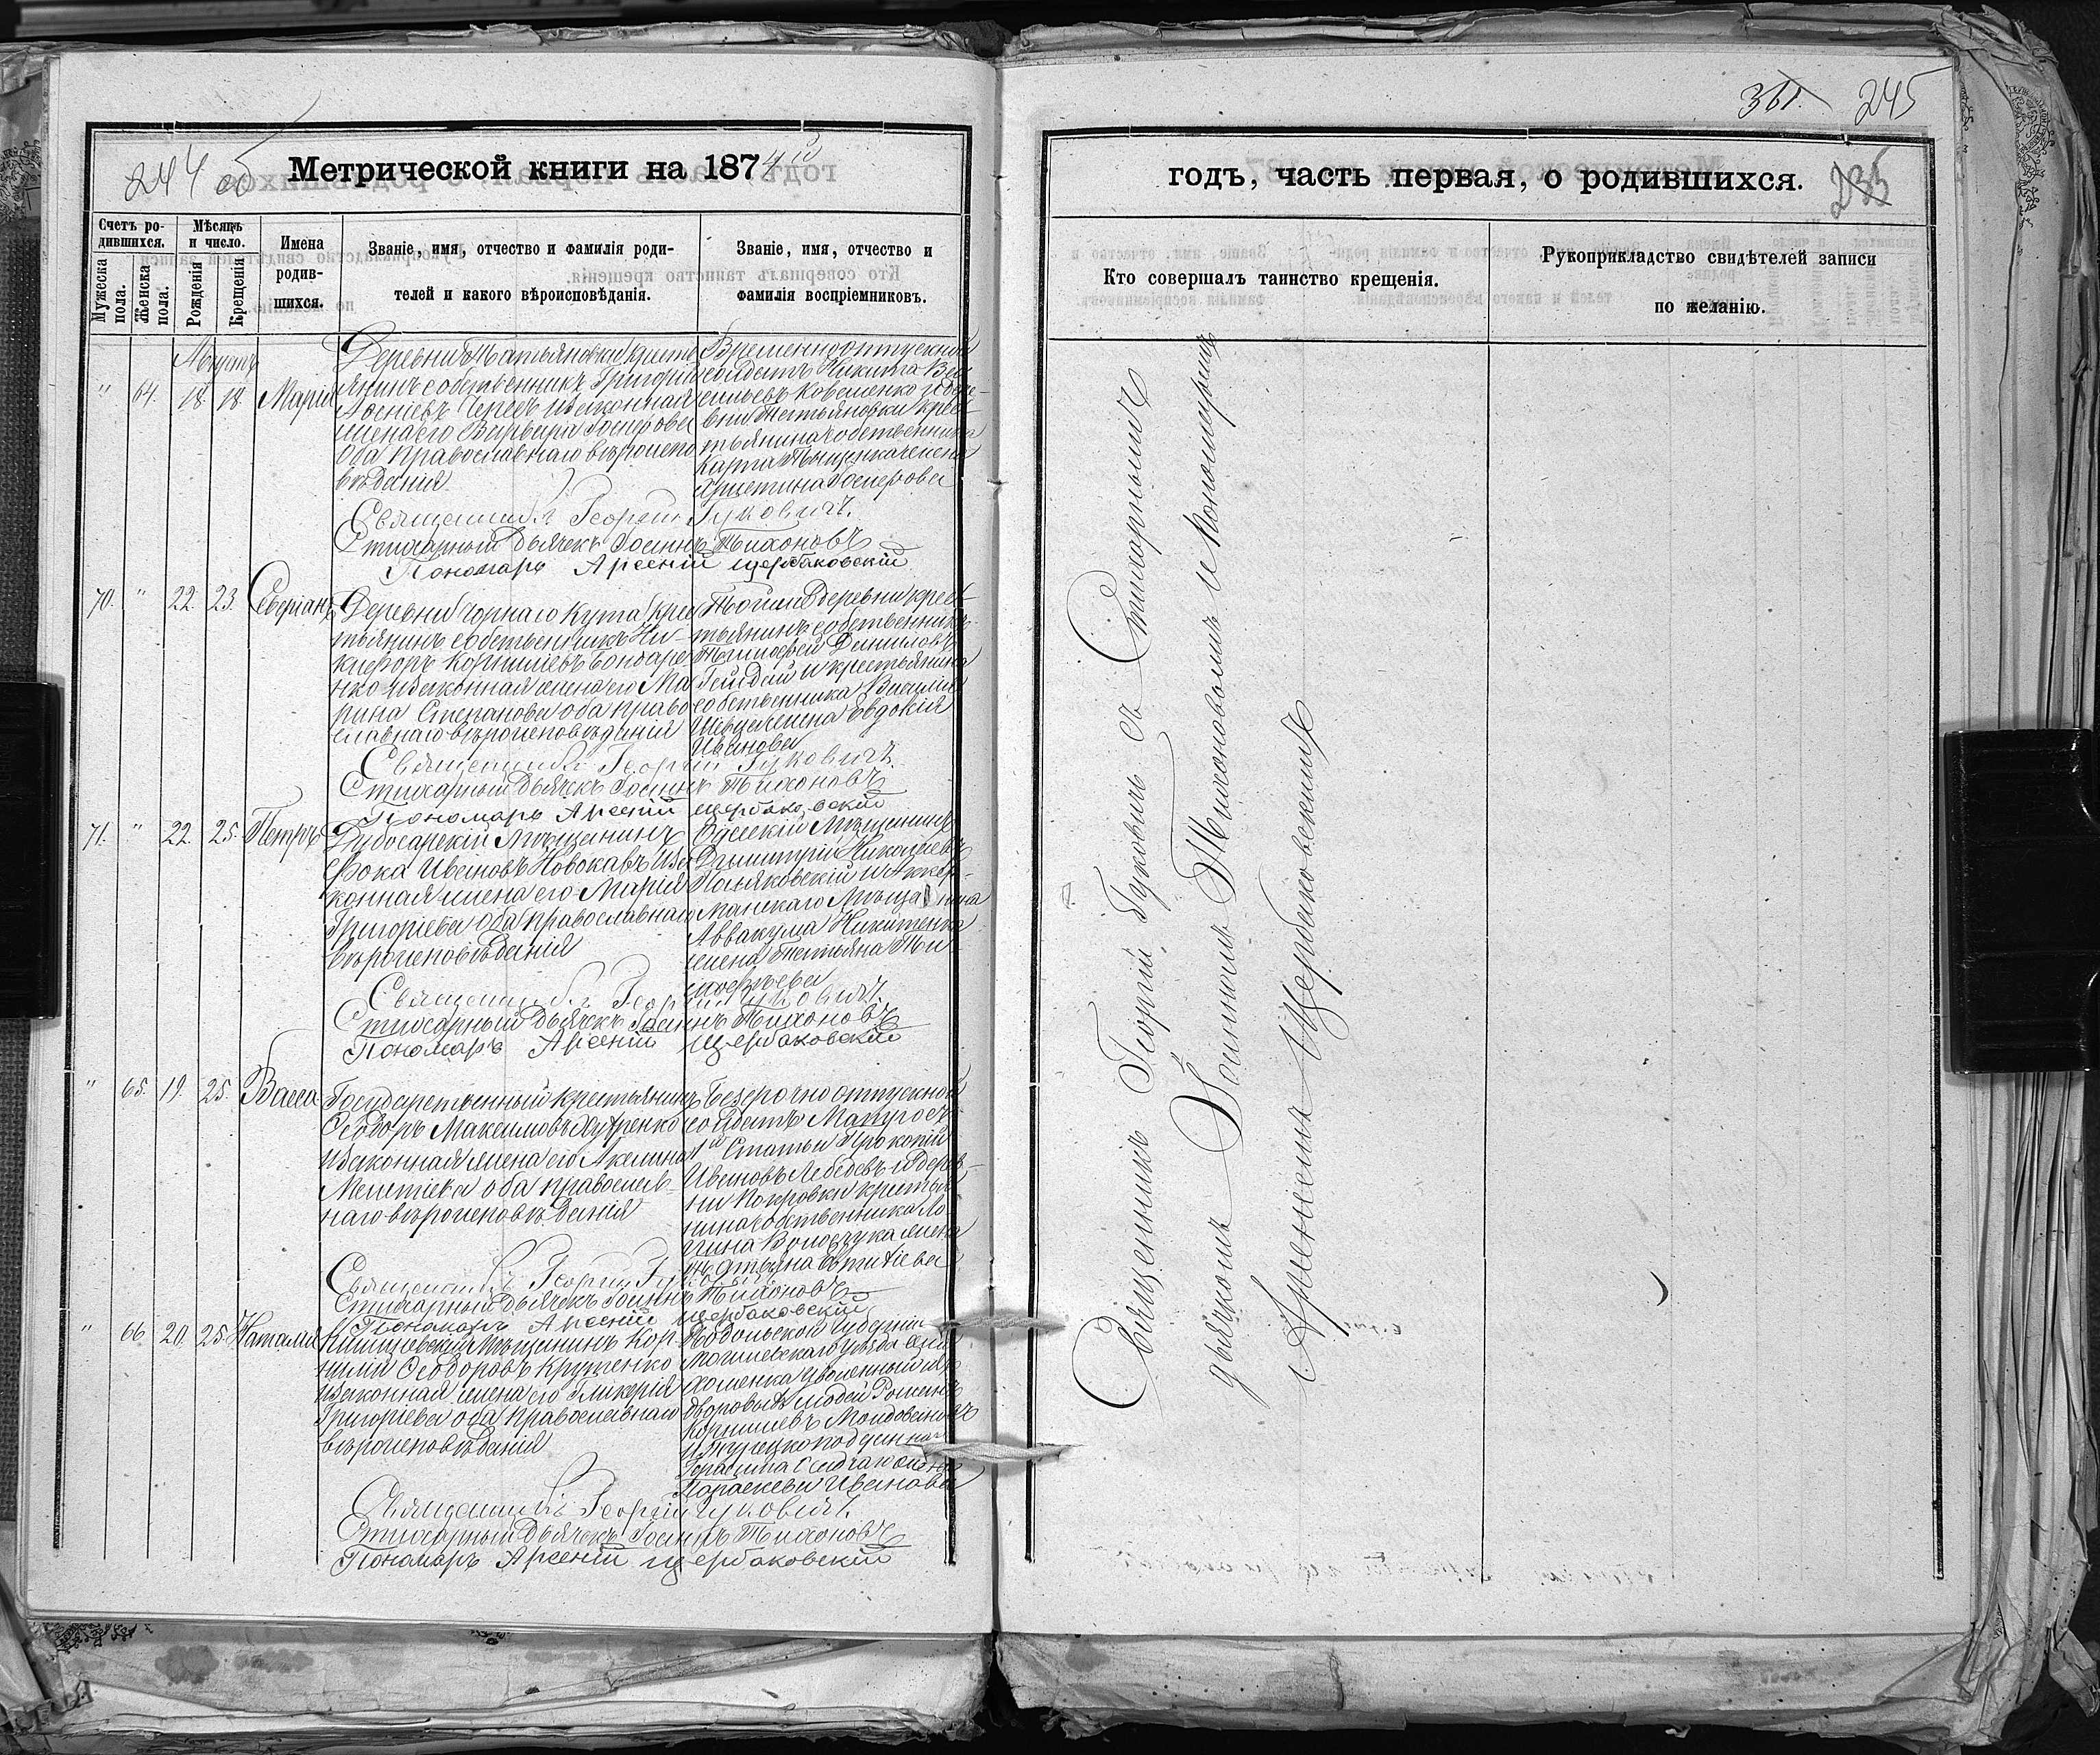 244 об
Метрической книги на 1874й
Счетъ ро-
дившихся.
Мужеска
пола.
Женска
пола.
Мѣсяцъ
и число.
Рожденія
Крещенія
Имена
родив-
шихся.
Званіе, имя, отчество и фамилія роди-
телей и какого вѣроисповѣданія.
Званіе, имя, отчество и
фамилія воспріемниковъ.
Августъ
" 64. 18. 18. Марія
янинъ собственникъ Григорій
жена его Варвара
Оба православнаго вѣроиспо
вѣданія
Временноотпускной
солдатъ Никита Ва
сильевъ Коваленко и дере-
вни Татьяновки крес
тьянина собственника
Карпа
Священникъ Георгій Гуковичъ.
Стихарный Дьячекъ Іоаннъ Тихоновъ
Пономарь Арсеній Щербаковскій
70. " 22. 23. Северіанъ
Деревни Чорнаго Кута крес
тьянинъ собственникъ Ни-
кифоръ Корниліевъ Бондаре
нко и законная жена его Ма
рина Степанова оба право
славнаго вѣроисповѣданія
Тойже деревни крес
тьянинъ собственникъ
Тимофей Даниловъ
и крестьянина
собственника Василія
жена Евдокія
Иванова
Священникъ Георгій Гуковичъ.
Стихарный Дьячекъ Іоаннъ Тихоновъ
Пономарь Арсеній Щербаковскій
71. " 22. 25. Петръ
Дубосарскій Мѣщанинъ
Фока Ивановъ Новокавъ и за
конная жена его Марія
Григоріева оба православнаго
вѣроисповѣданія
Одесскій Мѣщанинъ
Дмитрій Николаевъ
Поляковскій и Аккер-
манскаго Мѣщанина
Аввакума Никитенка
жена Татьяна Ти
мофѣева
Священникъ Георгій Гуковичъ.
Стихарный Дьячекъ Іоаннъ Тихоновъ
Пономарь Арсеній Щербаковскій
" 65. 19. 25. Васса
Государственный крестьянинъ
Ѳеодоръ Максимовъ
и законная жена его Акелина
оба православ-
наго вѣроисповѣданія
Безсрочноотпускной
солдатъ Матросъ
1й Статьи Прокопій
Ивановъ Лебедевъ и дерев-
ни Покровки крестья
нина собственника Ло
гина жена
Священникъ Георгій Гуковичъ
Стихарный Дьячекъ Іоаннъ Тихоновъ
Пономарь Арсеній Щербаковскій
" 66 20. 25 Наталія
Мѣщанинъ Кор-
нилій Ѳеодоровъ Круценко
и законная жена его Гликерія
Григоріева оба православнаго
вѣроисповѣданія
Подольской Губерніи
Могилевскаго уѣзда
уволенный изъ
дворовыхъ людей Романъ
Корниліевъ
Параскева Иванова
Священникъ Георгій Гуковичъ.
Стихарный Дьячекъ Іоаннъ Тихоновъ
Пономарь Арсеній Щербаковскій
361. 245
годъ, часть первая, о родившихся. 235
Кто совершалъ таинство крещенія.
Рукоприкладство свидѣтелей записи
по желанію.
Священникъ Георгій Гуковичъ съ Стихарнымъ
дьячкомъ Іоанномъ Тихоновымъ и Пономаремъ
Арсеніемъ Щербаковскимъ